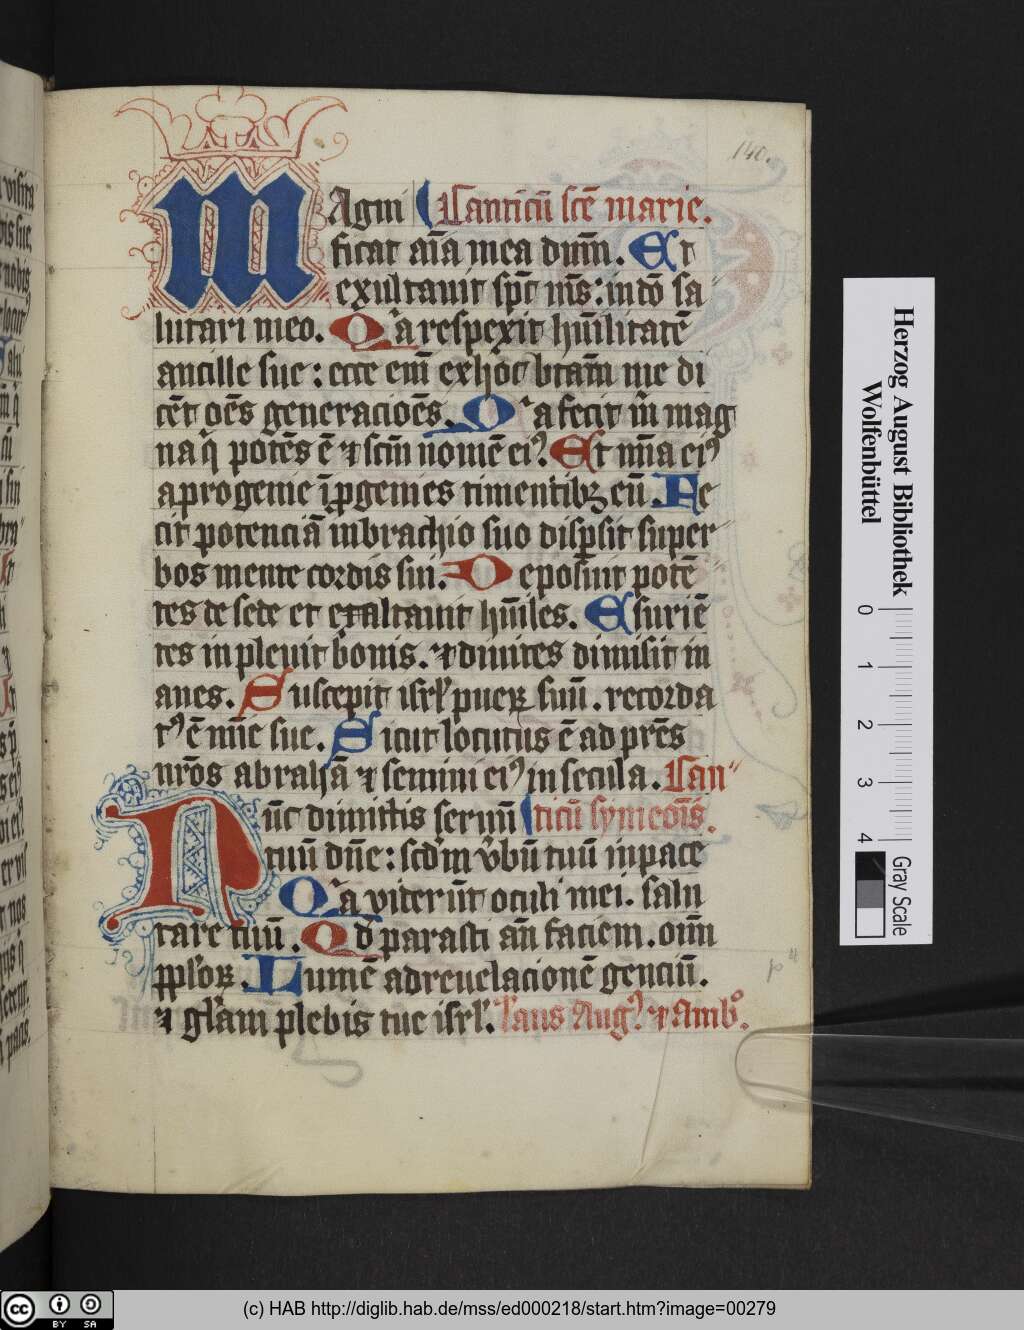 140.
MAgni Canticū scē marie.
ficat aīa mea dūm. Et
exultauit sp̄c m̄s: in dō sa
lutari meo. Qͥa respexit hūilitatē
ancille sue: ecce em̄ ex hoc btām me di
cēt oēs generacioēs. Qͥa fecit m̄ mag
na qͥ potēs ē ⁊ scm̄ nomē eiꝰ. Et mīa eiꝰ
a progenie ī ꝓgenies timentibꝫ eū. Fe
cit potenciā in brachio suo disp̄sit super
bos mente cordis sui. Deposuit potē
tes de sede et exaltauit hūiles. Esuriē
tes inpleuit bonis. ⁊ diuites dimisit in
anes. Suscepit isrl̄ pueꝝ suū. recorda
tꝰ ē mīe sue. Sicut locutus ē ad prēs
nr̄os abrahā ⁊ semini eiꝰ in secula. Can
Nūc dimittis seruū ticū symeōis.
tuū dn̄e: scd̄m v̄bū tuū in pace
Qͥa viderūt oculi mei. salu
tare tuū. Qd̄ parasti an̄ faciem. oīm
ppl̄oꝝ. Lumē ad reuelacionē genciū.
⁊ gl̄am plebis tue isrl̄. Laus Augꝰ. ⁊ Ambꝰ.
Herzog August Bibliothek
Wolfenbüttel
0 1 2 3 4
Gray Scale
cc BY SA
(c) HAB http://diglib.hab.de/mss/ed000218/start.htm?image=00279